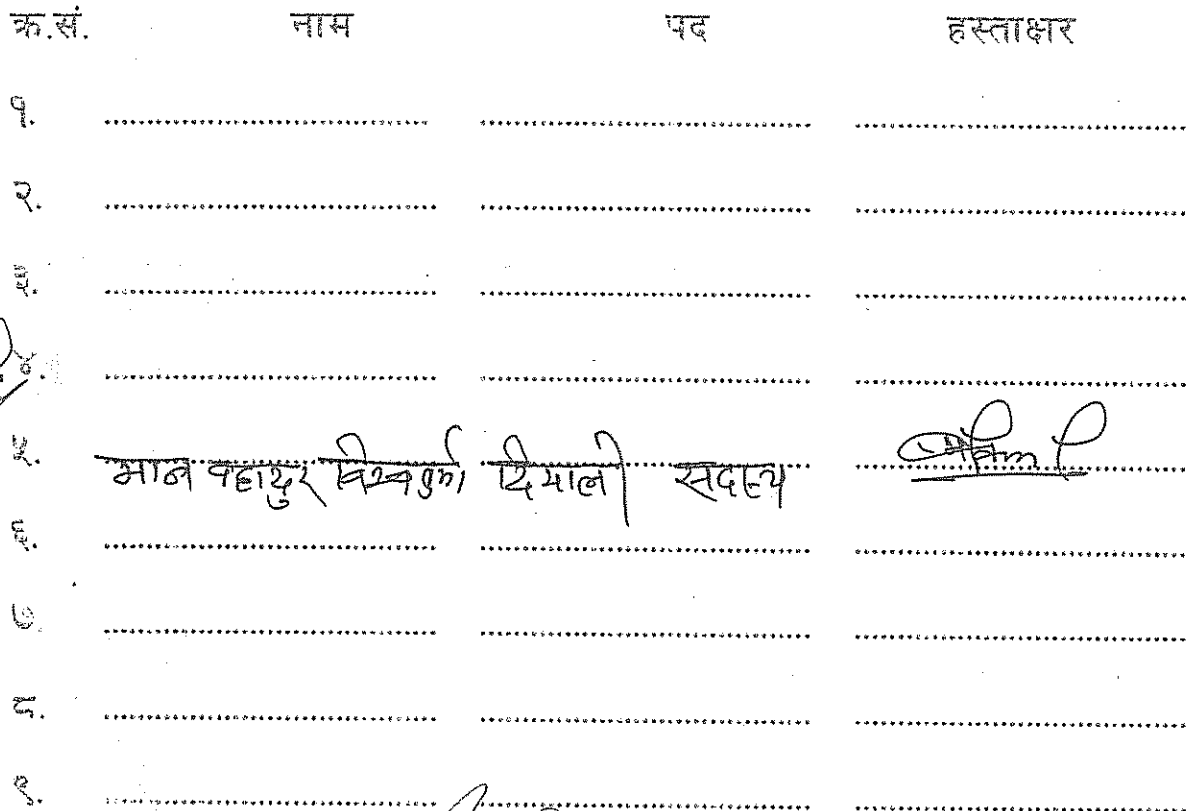 क्र.सं. नाम पद हस्ताक्षर
१.
२.
३.
४.
५. मान बहादुर विश्वकर्मा दियाली सदस्य
६.
७.
८.
९.